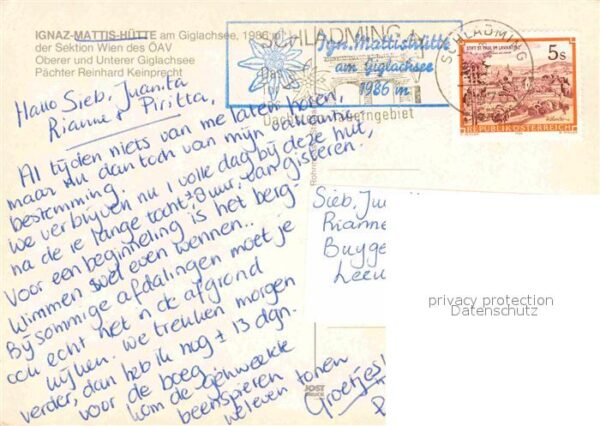 IGNAZ-MATTIS-HÜTTE am Giglachsee, 1986 m
der Sektion Wien des ÖAV
Oberer und Unterer Giglachsee
Pächter Reinhard Keinprecht
SCHLADMING
Ign. Mattishütte
am Giglachsee
1986 m
Dachstein-Tauerngebiet
SCHLADMING
STIFT ST. PAUL IM LAVANTTAL
5s
REPUBLIK ÖSTERREICH
Hallo Sieb, Juanita
Rianne & Piritta,
Al tijden niets van me laten horen,
maar nu dan toch van mijn vakantie
bestemming.
We verblijven nu 1 volle dag bij deze hut,
na de 1e lange tocht ± 8 uur, van gisteren.
Voor een beginneling is het berg-
klimmen wel even wennen..
Bij sommige afdalingen moet je
ook echt net in de afgrond
kijken. We trekken morgen
verder, dan heb ik nog ± 13 dgn.
voor de boeg.
Kom de
beenspieren
wel even tonen
Groetjes!
Sieb, Jua
Rianne
Buyge
Leeu
privacy protection
Datenschutz
JOST
DRUCK